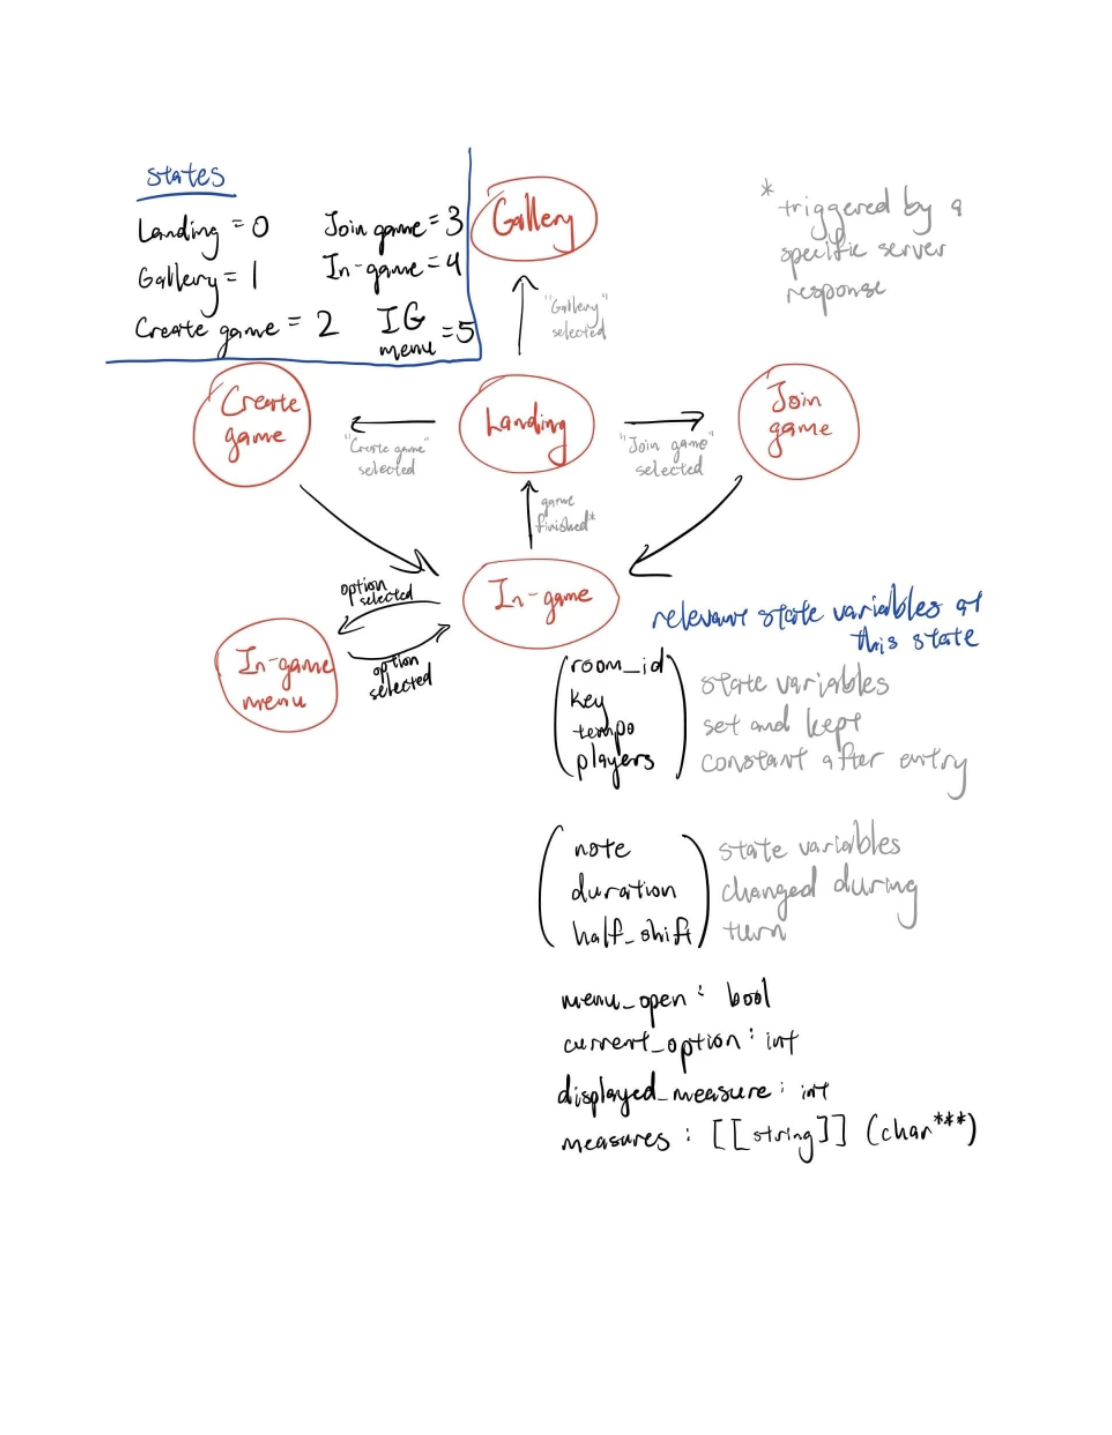 states
Landing = 0
Gallery = 1
Create game = 2
Join game = 3
In-game = 4
IG
menu = 5
Gallery
"Gallery"
selected
* triggered by a
specific server
response
Create
game
"Create game"
selected
Landing
"Join game"
selected
Join
game
game
finished*
In-game
option
selected
option
selected
In-game
menu
relevant state variables at
this state
room_id
key
tempo
players
state variables
set and kept
constant after entry
note
duration
half_shift
state variables
changed during
turn
menu_open : bool
current_option : int
displayed_measure : int
measures : [[string]] (char***)